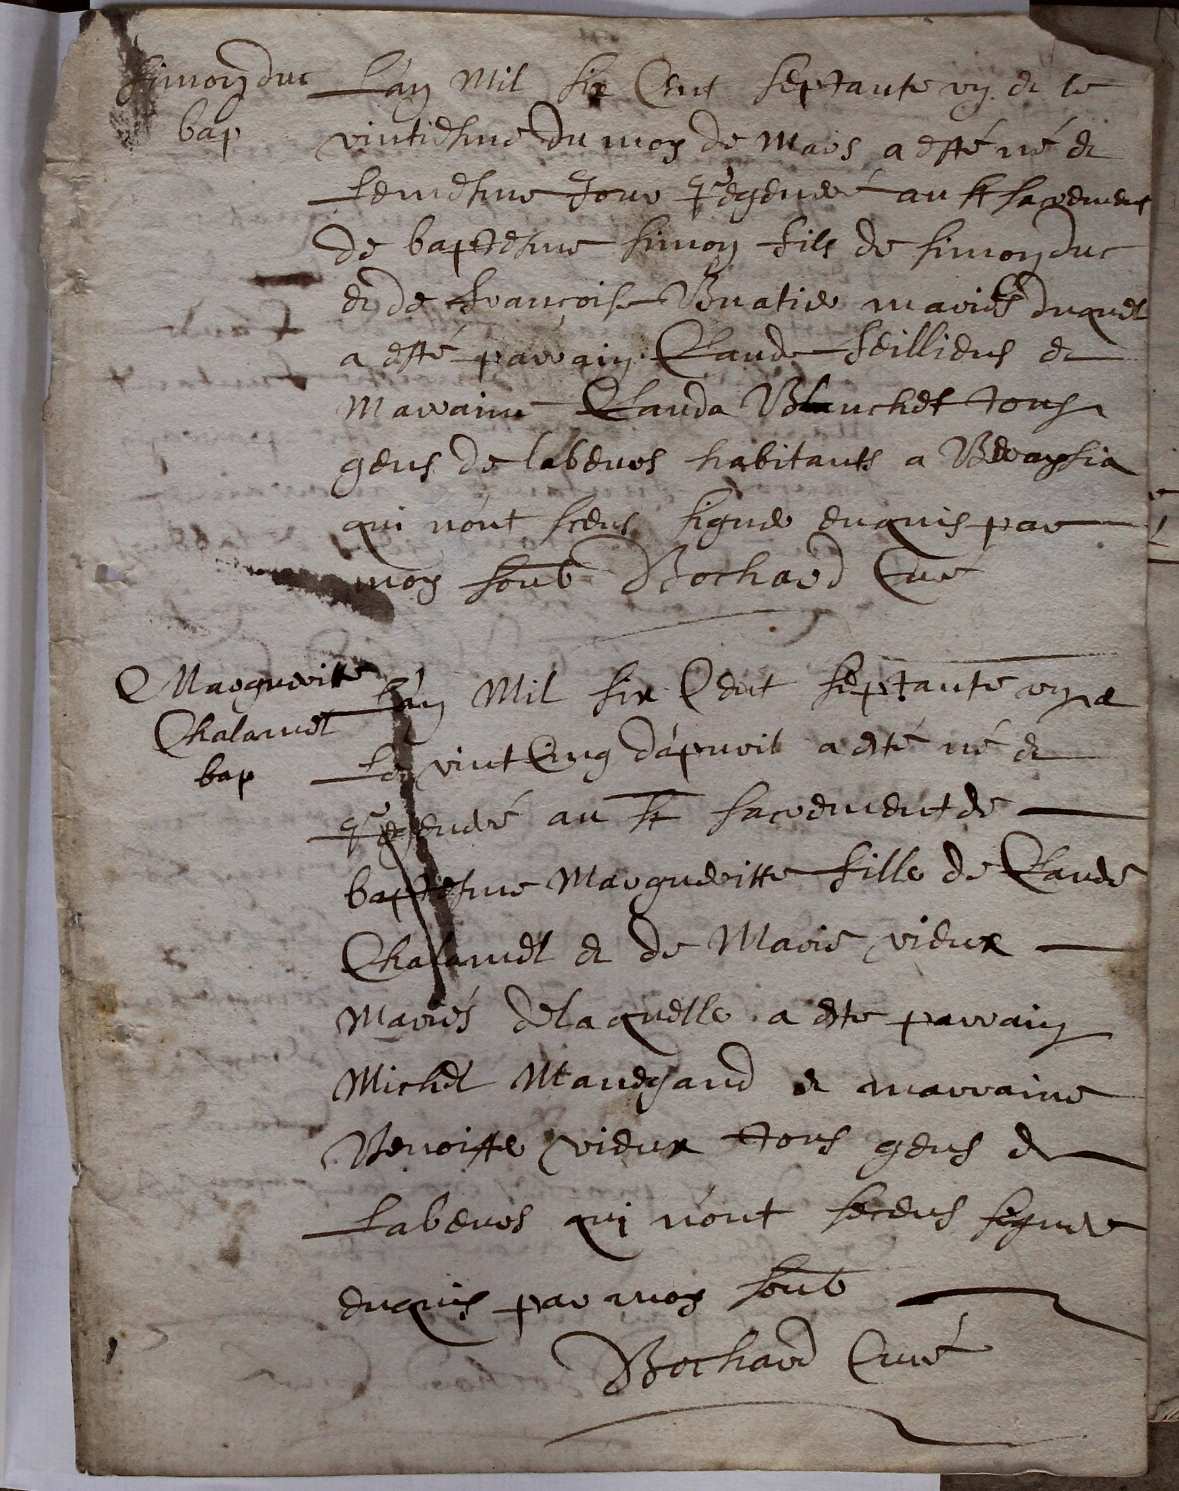 Simon duc
bap
L'an Mil six Cent septante un & le
vintiesme du moy de Mars a esté né &
le mesme jour régénéré au st sacrement
de baptesme Simon fils de Simon duc
& de françoise Buatier mariés duquel
a esté parrain Claude Seillieus &
Marraine Clauda Blanchet tous
gens de labeurs habitants a
qui n'ont sceus signer enquis par
moy soub Bochard Curé
Margueritte
Chalamel
bap
L'an Mil six Cent septante un &
le vint Cinq d'apvril a esté né &
régénéré au st sacrement de
baptesme Margueritte fille de Claude
Chalamel & de Marie vieux
Mariés delaquelle a esté parrain
Michel & marraine
Benoitte vieux tous gens de
labeurs qui n'ont sceus signer
enquis par moy soub
Bochard Curé